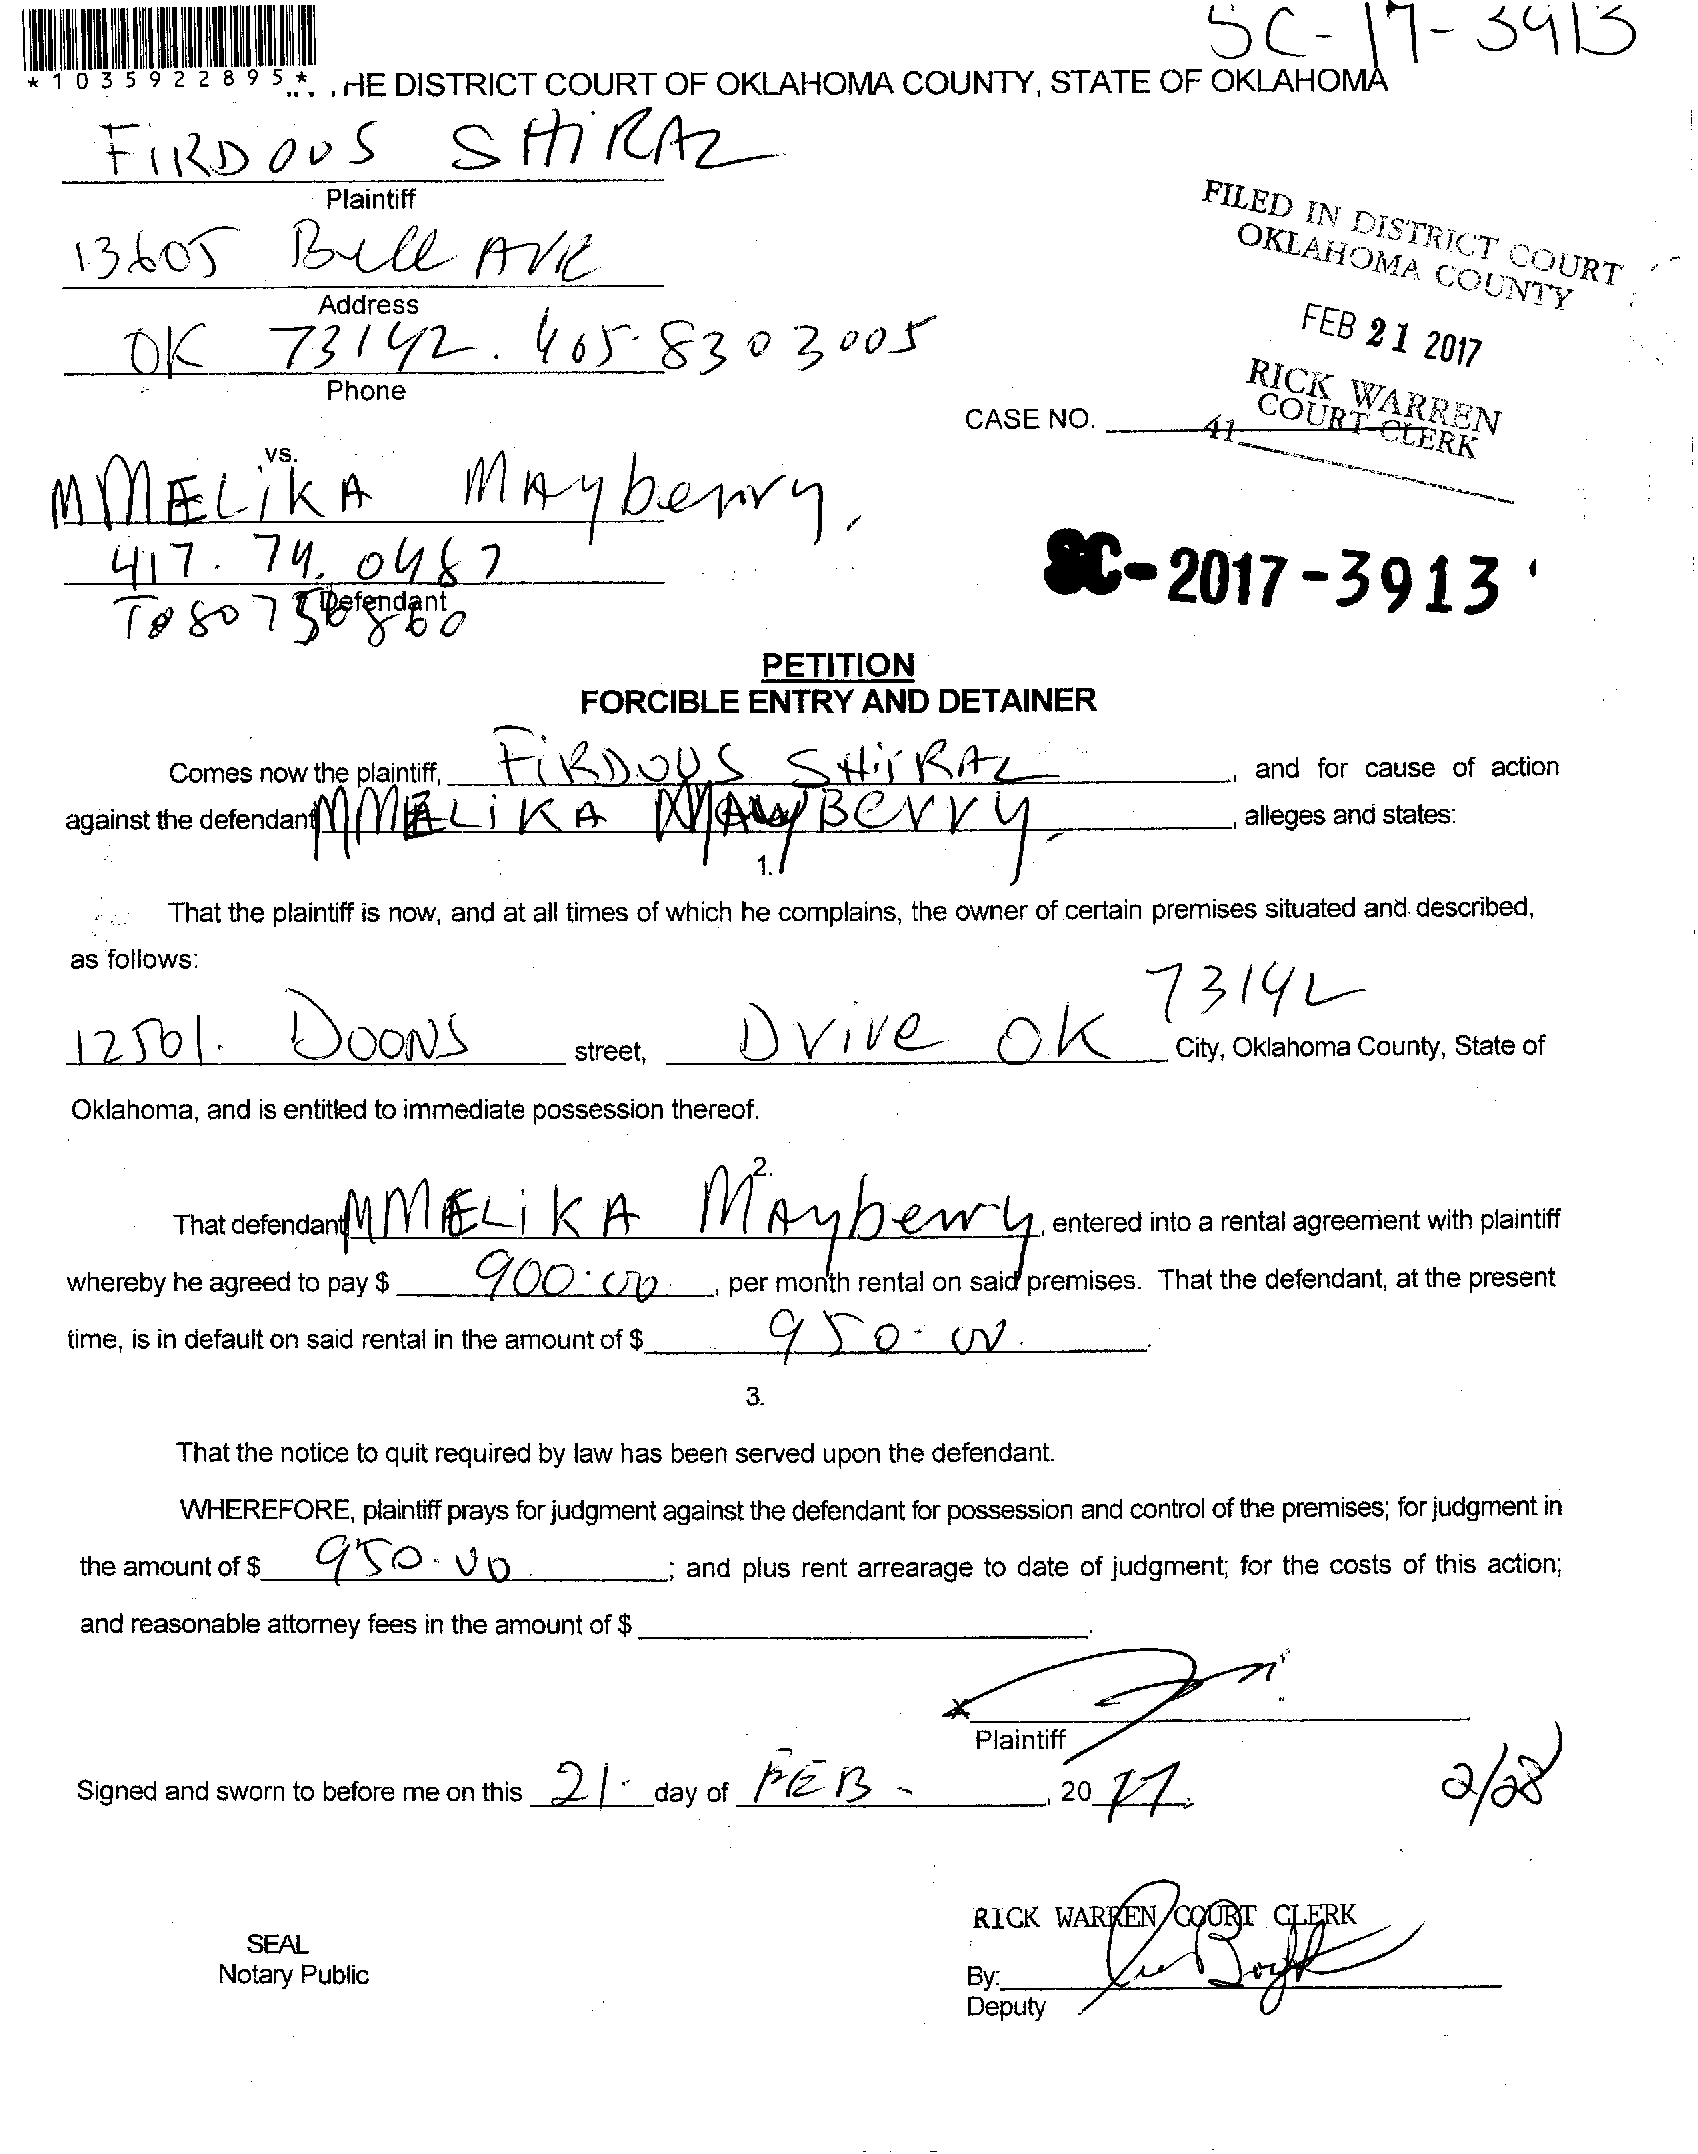 SC-17-3913
*1035922895*
HE DISTRICT COURT OF OKLAHOMA COUNTY, STATE OF OKLAHOMA
FIRDOUS SHIRAZ
Plaintiff
13605 Bell AVE
Address
OK 73142. 405.8303005
Phone
FILED IN DISTRICT COURT
OKLAHOMA COUNTY
FEB 21 2017
RICK WARREN
COURT CLERK
CASE NO.
41
vs.
MMELIKA Mayberry,
417. 74. 0487
Defendant
SC-2017-3913
PETITION
FORCIBLE ENTRY AND DETAINER
Comes now the plaintiff, FIRDOUS SHIRAZ, and for cause of action
against the defendant MMELIKA MAYBERRY, alleges and states:
1.
That the plaintiff is now, and at all times of which he complains, the owner of certain premises situated and described,
as follows:
73142
12501. DOONS street, Drive OK City, Oklahoma County, State of
Oklahoma, and is entitled to immediate possession thereof.
2.
That defendant MMELIKA Mayberry, entered into a rental agreement with plaintiff
whereby he agreed to pay $ 900.00, per month rental on said premises. That the defendant, at the present
time, is in default on said rental in the amount of $ 950.00.
3.
That the notice to quit required by law has been served upon the defendant.
WHEREFORE, plaintiff prays for judgment against the defendant for possession and control of the premises; for judgment in
the amount of $ 950.00; and plus rent arrearage to date of judgment; for the costs of this action;
and reasonable attorney fees in the amount of $
x
Plaintiff
Signed and sworn to before me on this 21. day of FEB-, 2017.
2/28
RICK WARREN COURT CLERK
SEAL
Notary Public
By:
Deputy